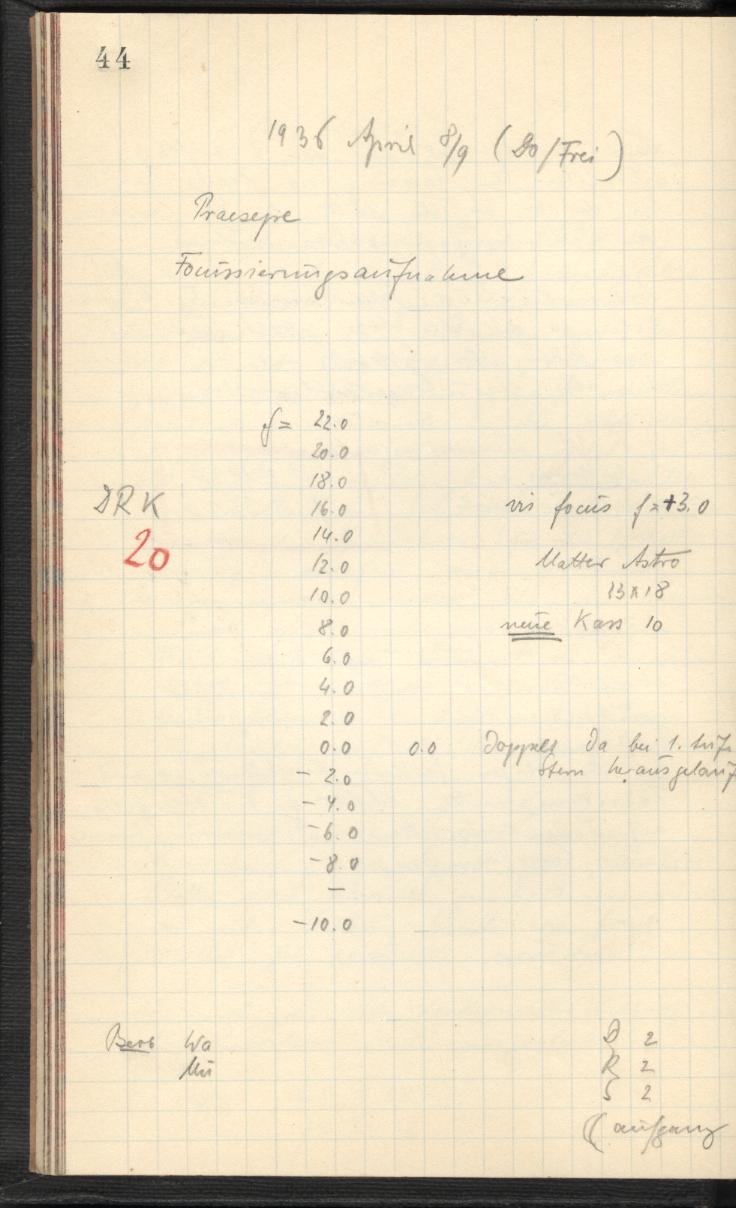 44
1936 April 8/9 (Do/Frei)
Praesepe
Focussierungsaufnahme
f = 22.0
20.0
18.0
DRK 16.0 vis focus f = +3.0
20 14.0
12.0 Matter Astro
10.0 13x18
8.0 neue Kass 10
6.0
4.0
2.0
0.0 0.0 Doppelt da bei 1. Aufn
- 2.0 Stern herausgelauf
- 4.0
- 6.0
- 8.0
—
- 10.0
Beob Wa D 2
Mü R 2
S 2
aufgang